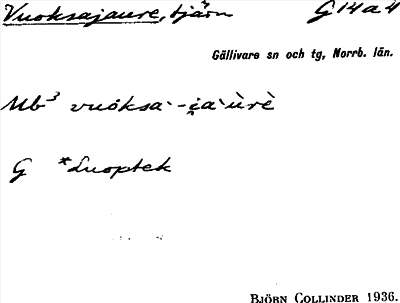 Vuoksajaure, tjärn G 14 a 4
Gällivare sn och tg, Norrb. län.
Mb³ vuoksa`-i̯a`ùrè
G *Luoptek
BJÖRN COLLINDER 1936.